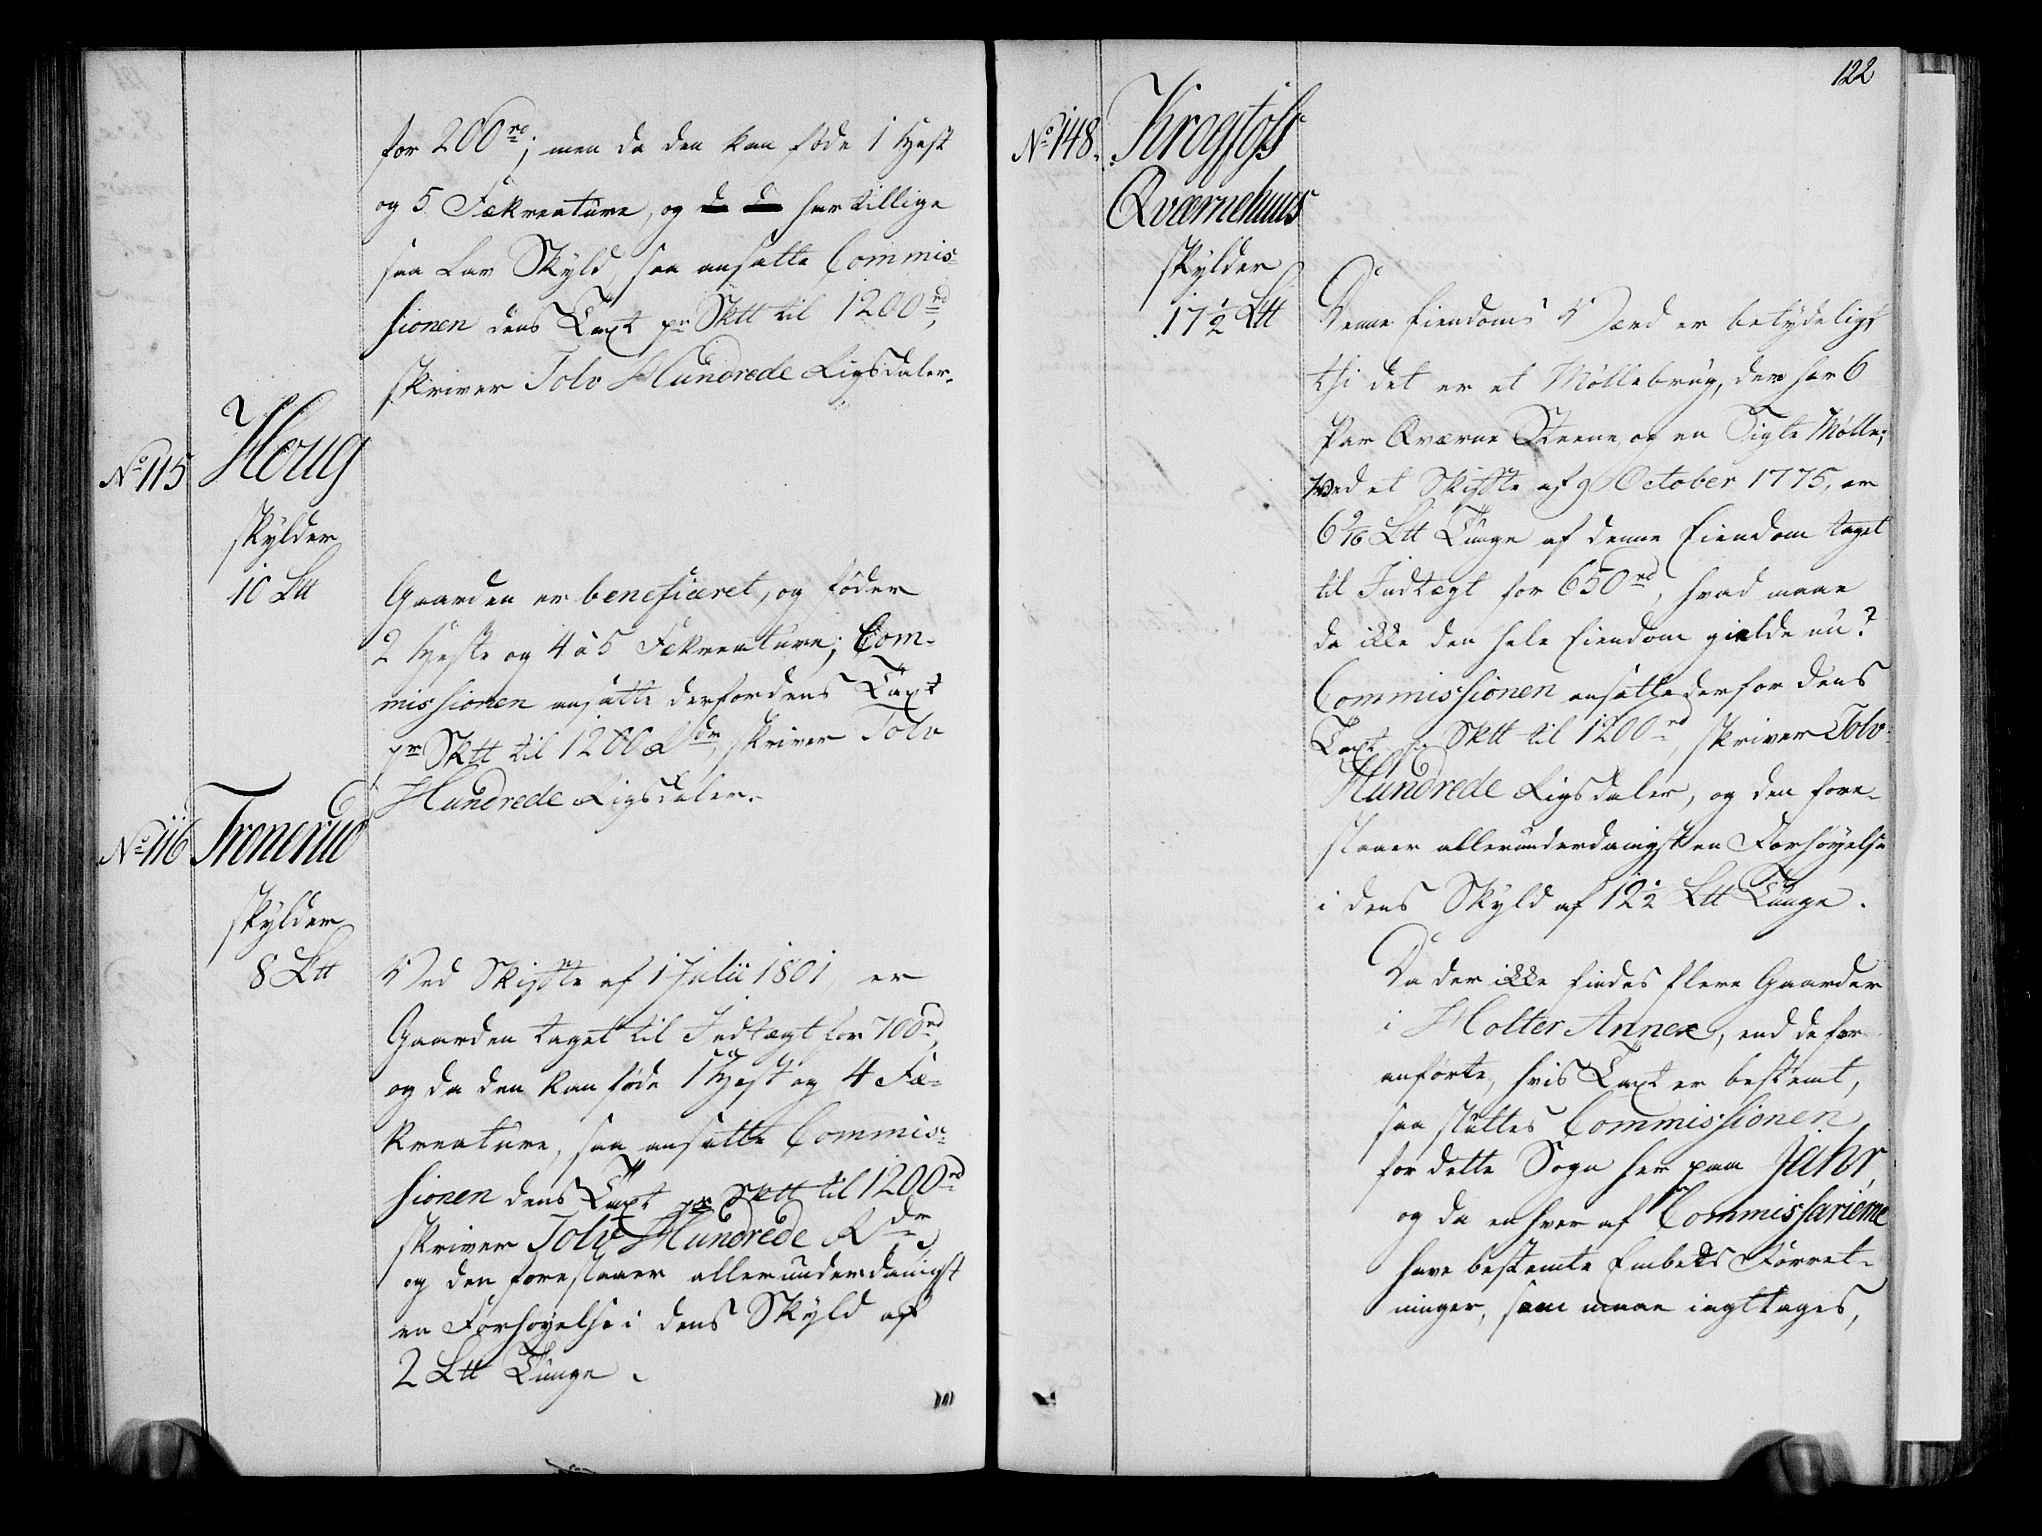 for 200 rd; men da den kan føde 1 Hest
og 5 Fækreature, og har tillige
saa lav Skyld, saa ansatte Commis-
sionen dens Taxt pr Sktt til 1200 rd,
skriver Tolv Hundrede Rigsdaler.
No 115 Houg
skylder
10 Ltt
Gaarden er beneficeret, og føder
2 Heste og 4 à 5 Fækreature; Com-
missionen ansatte derfor dens Taxt
pr Sktt til 1200 Rdr, skriver Tolv
Hundrede Rigsdaler.
No 116 Tronerud
skylder
8 Ltt
Ved Skifte af 1 Julii 1801, er
Gaarden taget til Indtægt for 700 rd,
og da den kan føde 1 Hest og 4 Fæ-
kreature, saa ansatte Commis-
sionen dens Taxt pr Sktt til 1200 rd
skriver Tolv Hundrede Rdr,
og den foreslaaer allerunderdanigst
en Forhøyelse i dens Skyld af
2 Ltt Tunge.
122
No 148. Krogfoss
Qværnehuus
skylder
17 1/2 Ltt
Denne Eiendoms Værd er betydeligt
thi det er et Møllebrug, der har 6
Par Qværne Steene, og en Sigte Mølle;
Ved et Skifte af 9 October 1775, er
6 9/16 Ltt Tunge af denne Eiendom taget
til Indtægt for 650 rd, hvad maae
da ikke den hele Eiendom gielde nu?
Commissionen ansatte derfor dens
Taxt pr Sktt til 1200 rd, skriver Tolv
Hundrede Rigsdaler, og den fore-
slaaer allerunderdanigst en Forhøyelse
i dens Skyld af 12 1/2 Ltt Tunge.
Da der ikke findes flere Gaarder
i Holter Annex, end de her
anførte, hvis Taxt er bestemt,
saa sluttes Commissionen
for dette Sogn her paa Jahr,
og da enhver af Commissarierne
have bestemte Embeds Forret-
ninger, som maae iagttages,